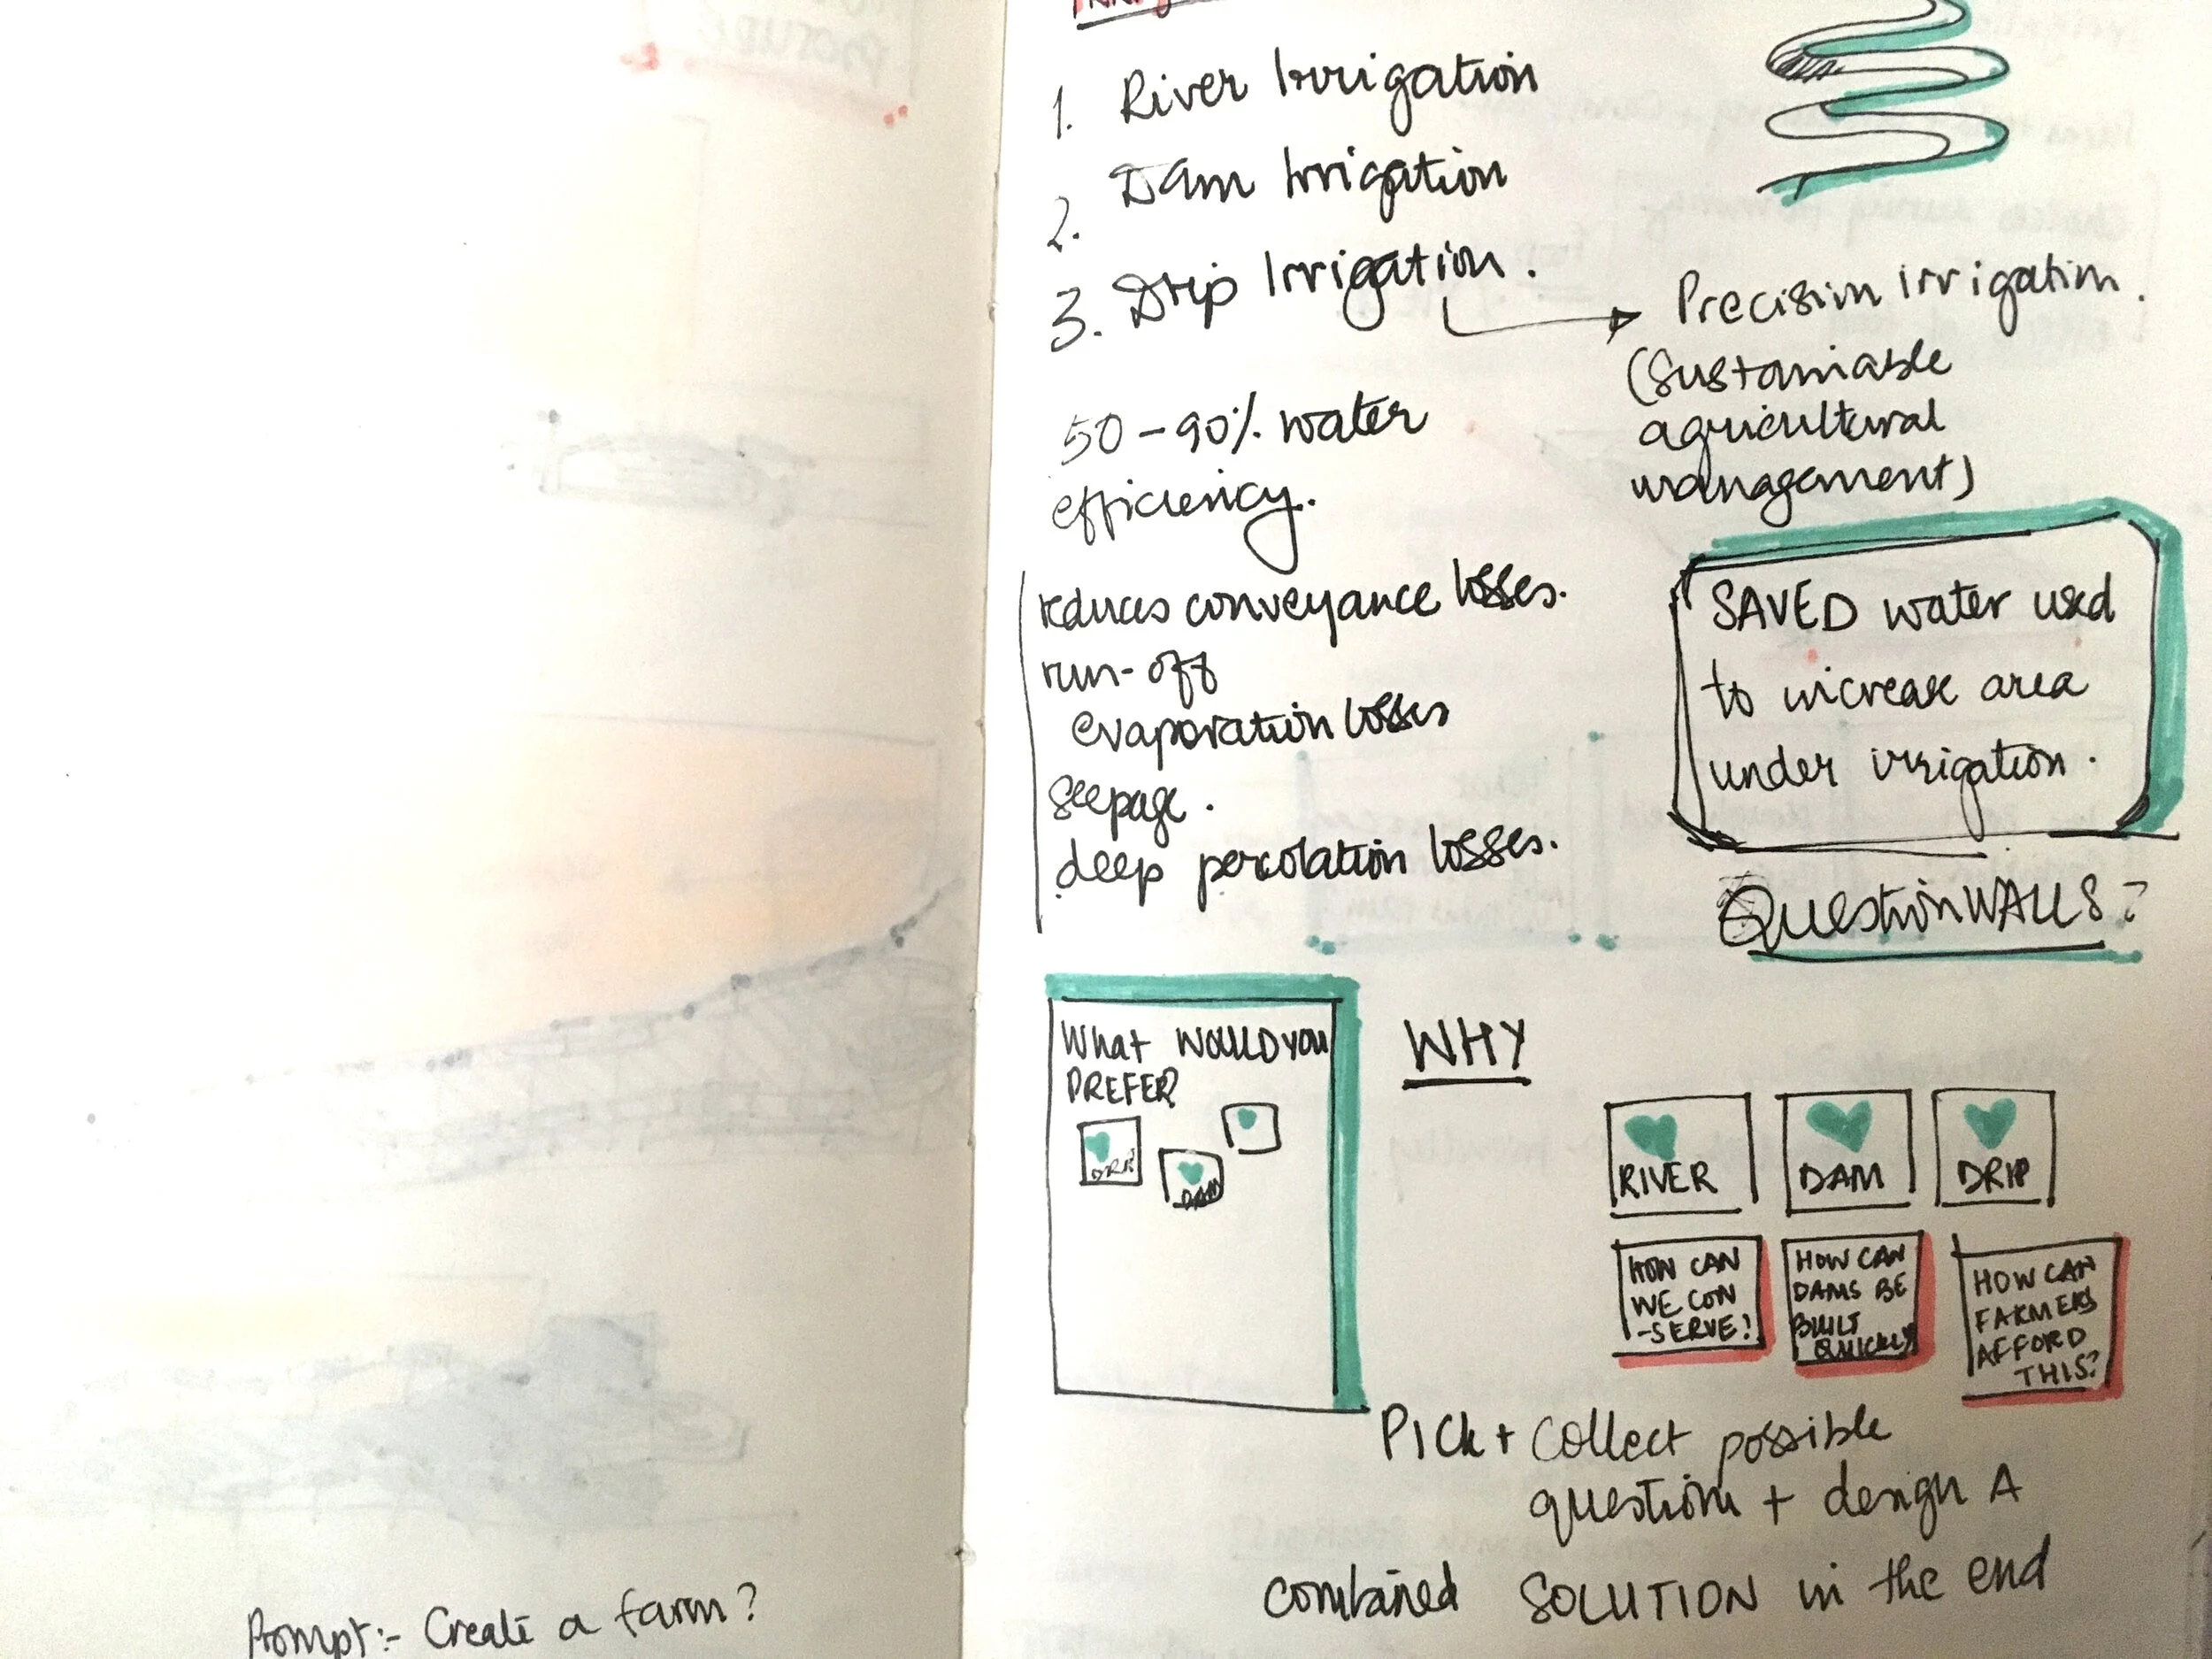 Prompt:- Create a farm?
1. River Irrigation
2. Dam Irrigation
3. Drip Irrigation.
Precision irrigation.
(Sustainable
agricultural
management)
50-90% water
efficiency.
reduces conveyance losses.
run-off
evaporation losses
seepage.
deep percolation losses.
SAVED water used
to increase area
under irrigation.
Question WALLS?
What WOULD YOU
PREFER?
DRIP
DAM
WHY
RIVER
DAM
DRIP
HOW CAN
WE CON
-SERVE?
HOW CAN
DAMS BE
BUILT
QUICKLY?
HOW CAN
FARMERS
AFFORD
THIS?
PICK + Collect possible
questions + design A
combined SOLUTION in the end